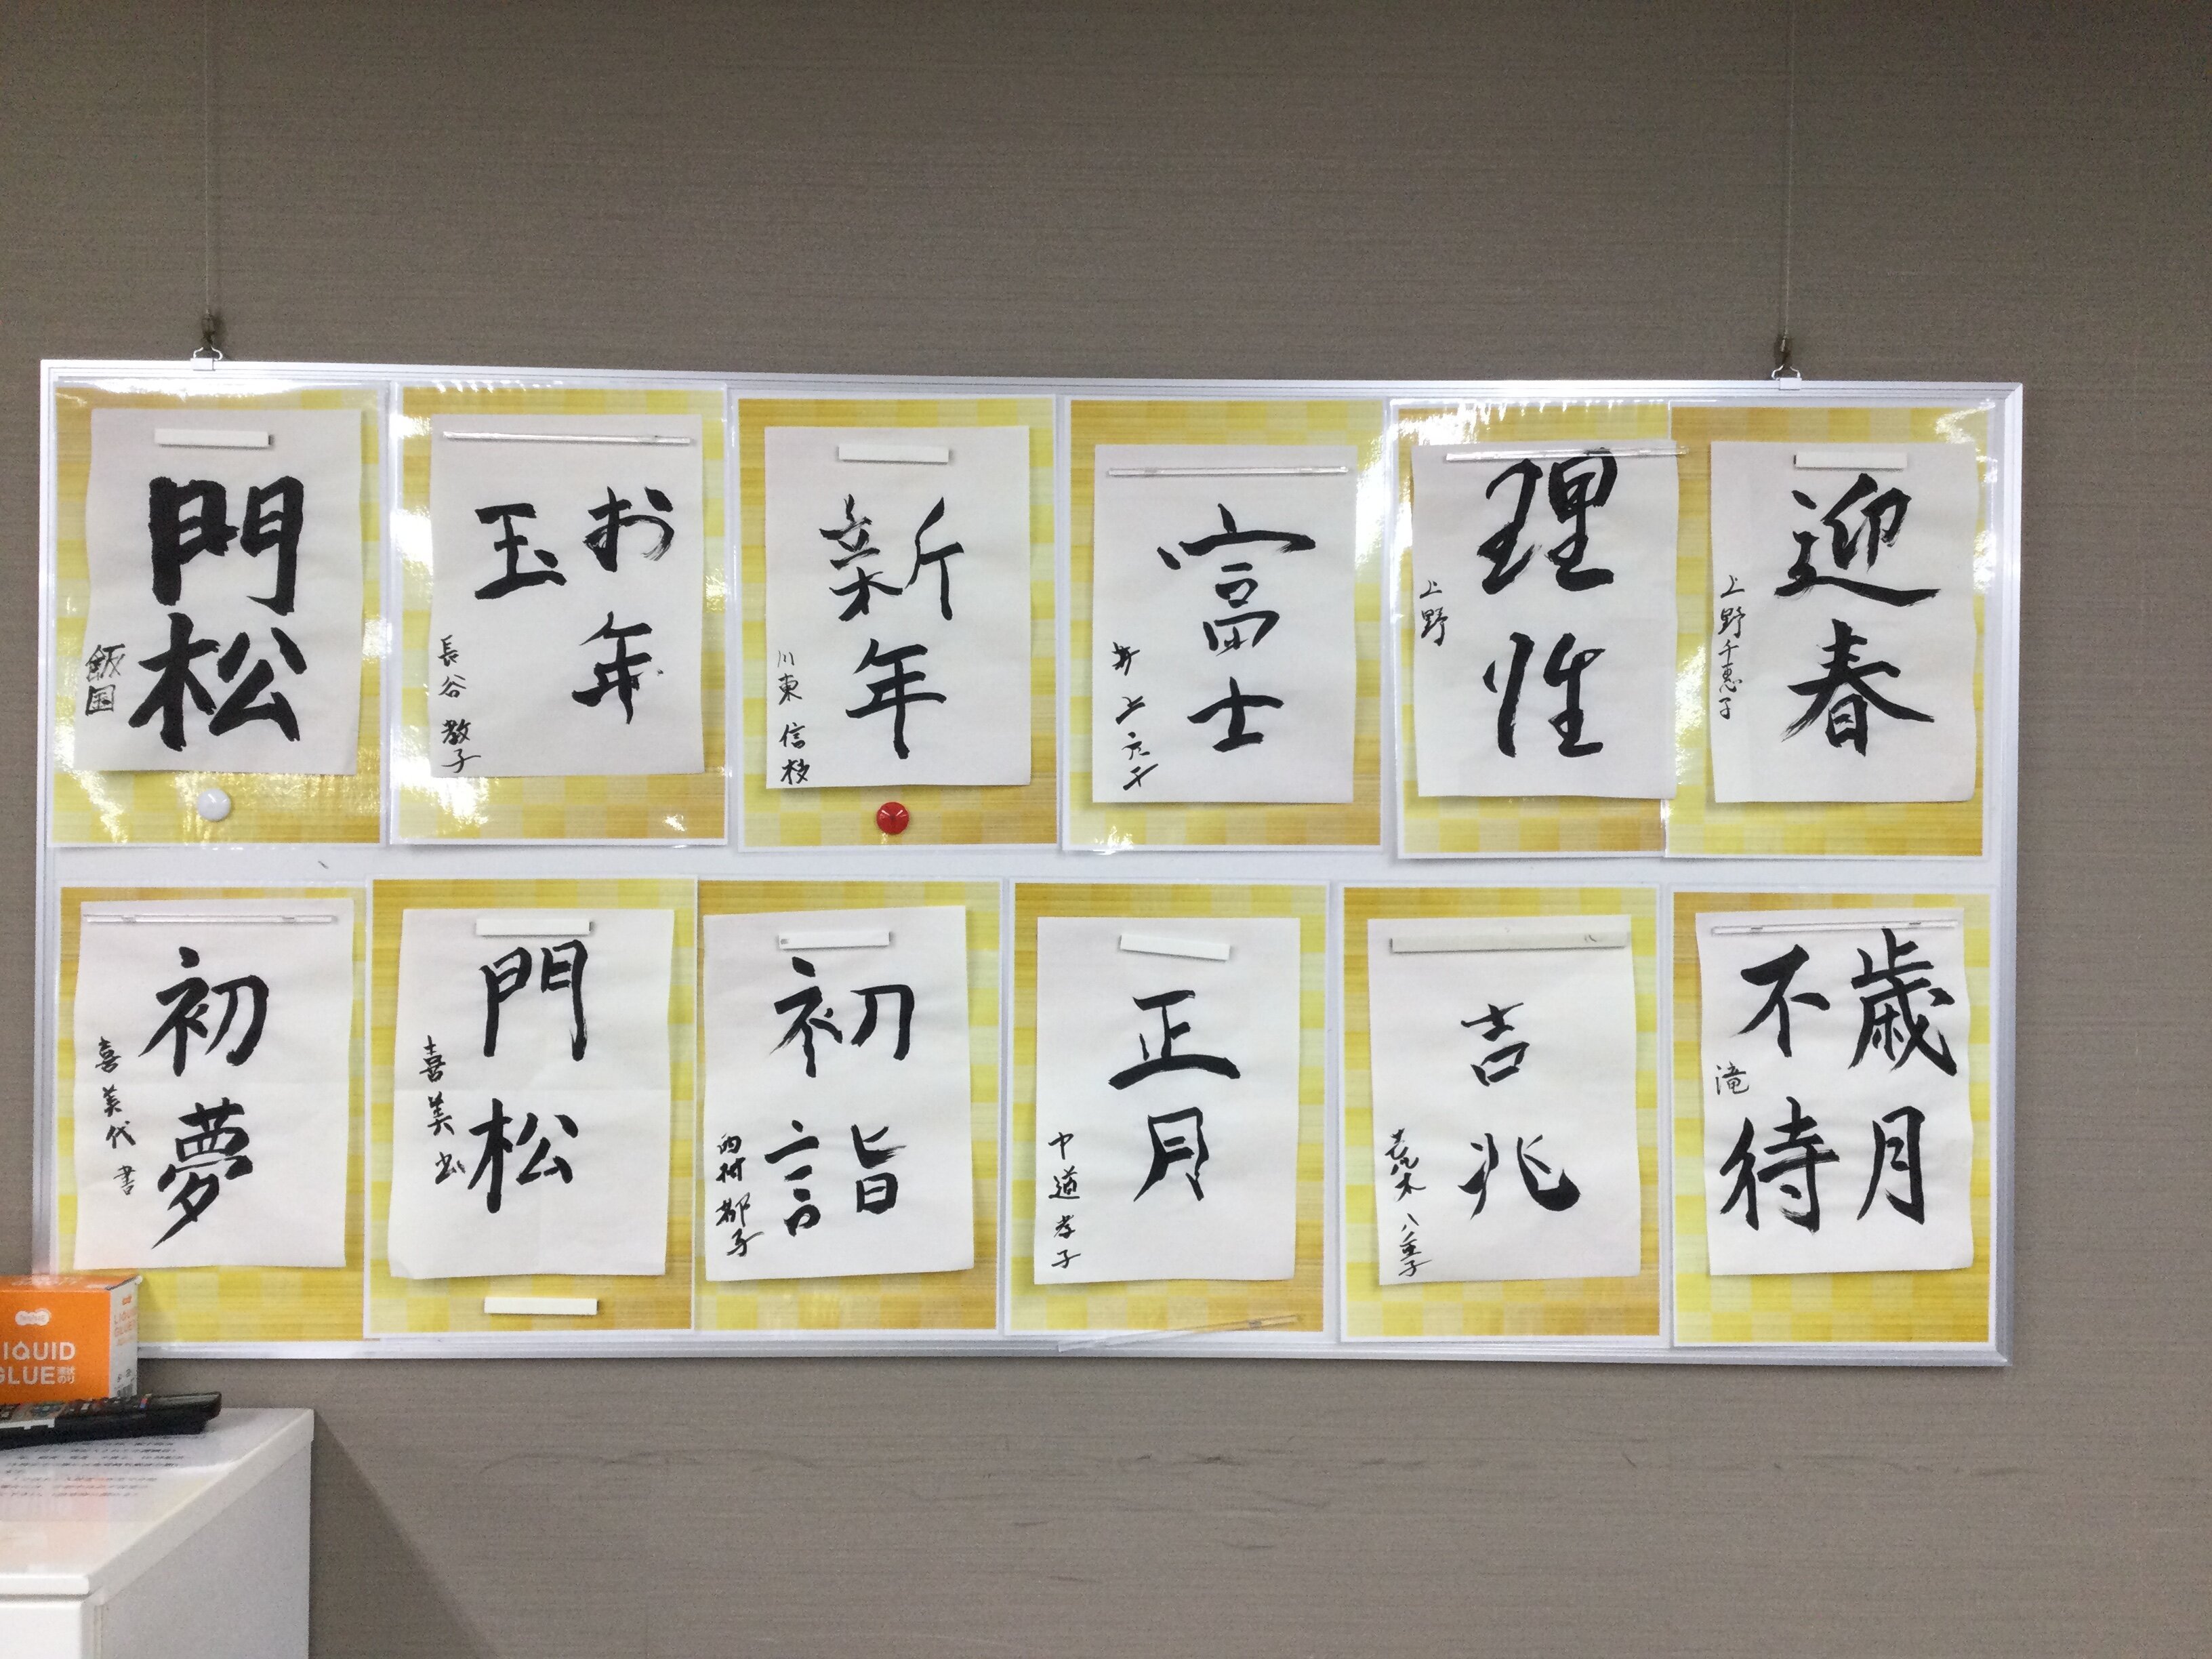 迎春
上野千恵子
理性
上野
富士
井上
新年
川東信枝
お年
玉
長谷教子
門松
飯国
歳月
不待
滝
吉兆
八重子
正月
中道孝子
初詣
西村都子
門松
喜美
初夢
喜美代書
LIQUID
GLUE